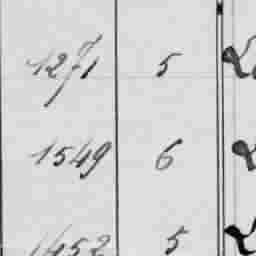 1271 5
1549 6
1452 5